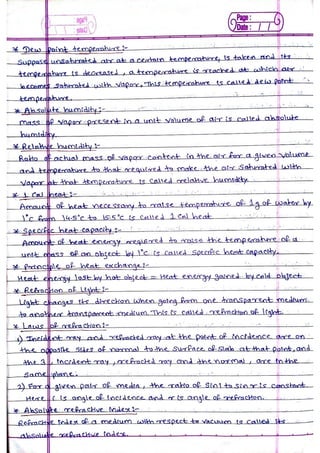 Page :
Date : / /
* Dew point temperature:-
Suppose unsaturated air at a certain temperature, is taken and its
temperature is decreased, a temperature is reached at which air
becomes saturated with vapor. This temperature is called dew point
temperature.
* Absolute humidity:-
Mass of vapor present in a unit volume of air is called absolute
humidity
* Relative humidity :-
Ratio of actual mass of vapor content in the air for a given volume
and temperature to that required to make the air saturated with
vapor at that temperature is called relative humidity
* 1 Cal heat :-
Amount of heat necessary to raise temperature of 1g of water by
1°C from 14.5°C to 15.5°C is called 1 Cal heat
* Specific heat capacity:-
Amount of heat energy required to raise the temperature of a
unit mass of an object by 1°C is called specific heat capacity.
* principle of heat exchange:-
Heat energy lost by hot object = Heat energy gained by cold object
* Refraction of light:-
Light changes its direction when going from one transparent medium
to another transparent medium. This is called refraction of light
* Laws of refraction:-
1) Incident ray and refracted ray at the point of incidence are on
the opposite sides of normal to the surface of slab at that point, and
the 3, incident ray, refracted ray and the normal, are in the
same plane.
2) For a given pair of media, the ratio of sin i to sin r is constant
Here i is angle of incidence and r is angle of refraction.
* Absolute refractive index:-
Refractive index of a medium with respect to vacuum is called its
absolute refractive index.